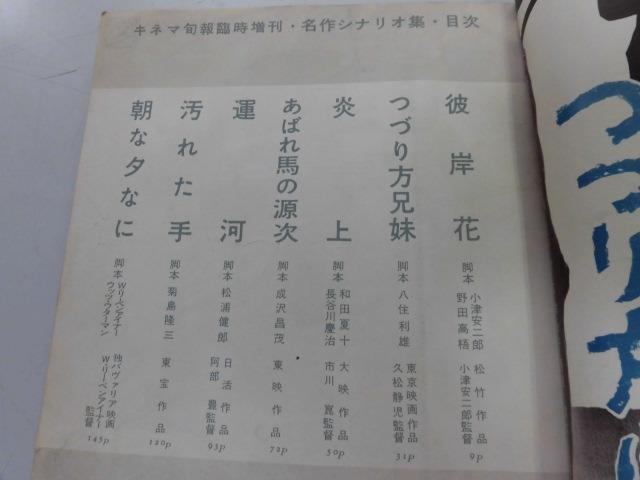 キネマ旬報臨時増刊・名作シナリオ集・目次
彼岸花
脚本 小津安二郎
野田高梧
松竹作品
小津安二郎監督
9P
つづり方兄妹
脚本 八住利雄
東京映画作品
久松静児監督
31P
炎上
脚本 和田夏十
長谷川慶治
大映作品
市川崑監督
50P
あばれ馬の源次
脚本 成沢昌茂
東映作品
72P
運河
脚本 松浦健郎
日活作品
阿部豊監督
95P
汚れた手
脚本 菊島隆三
東宝作品
120P
朝な夕なに
脚本 W・リーベンアイナー
ウッツ・ウターマン
独バヴァリア映画
W・リーベンアイナー監督
145P